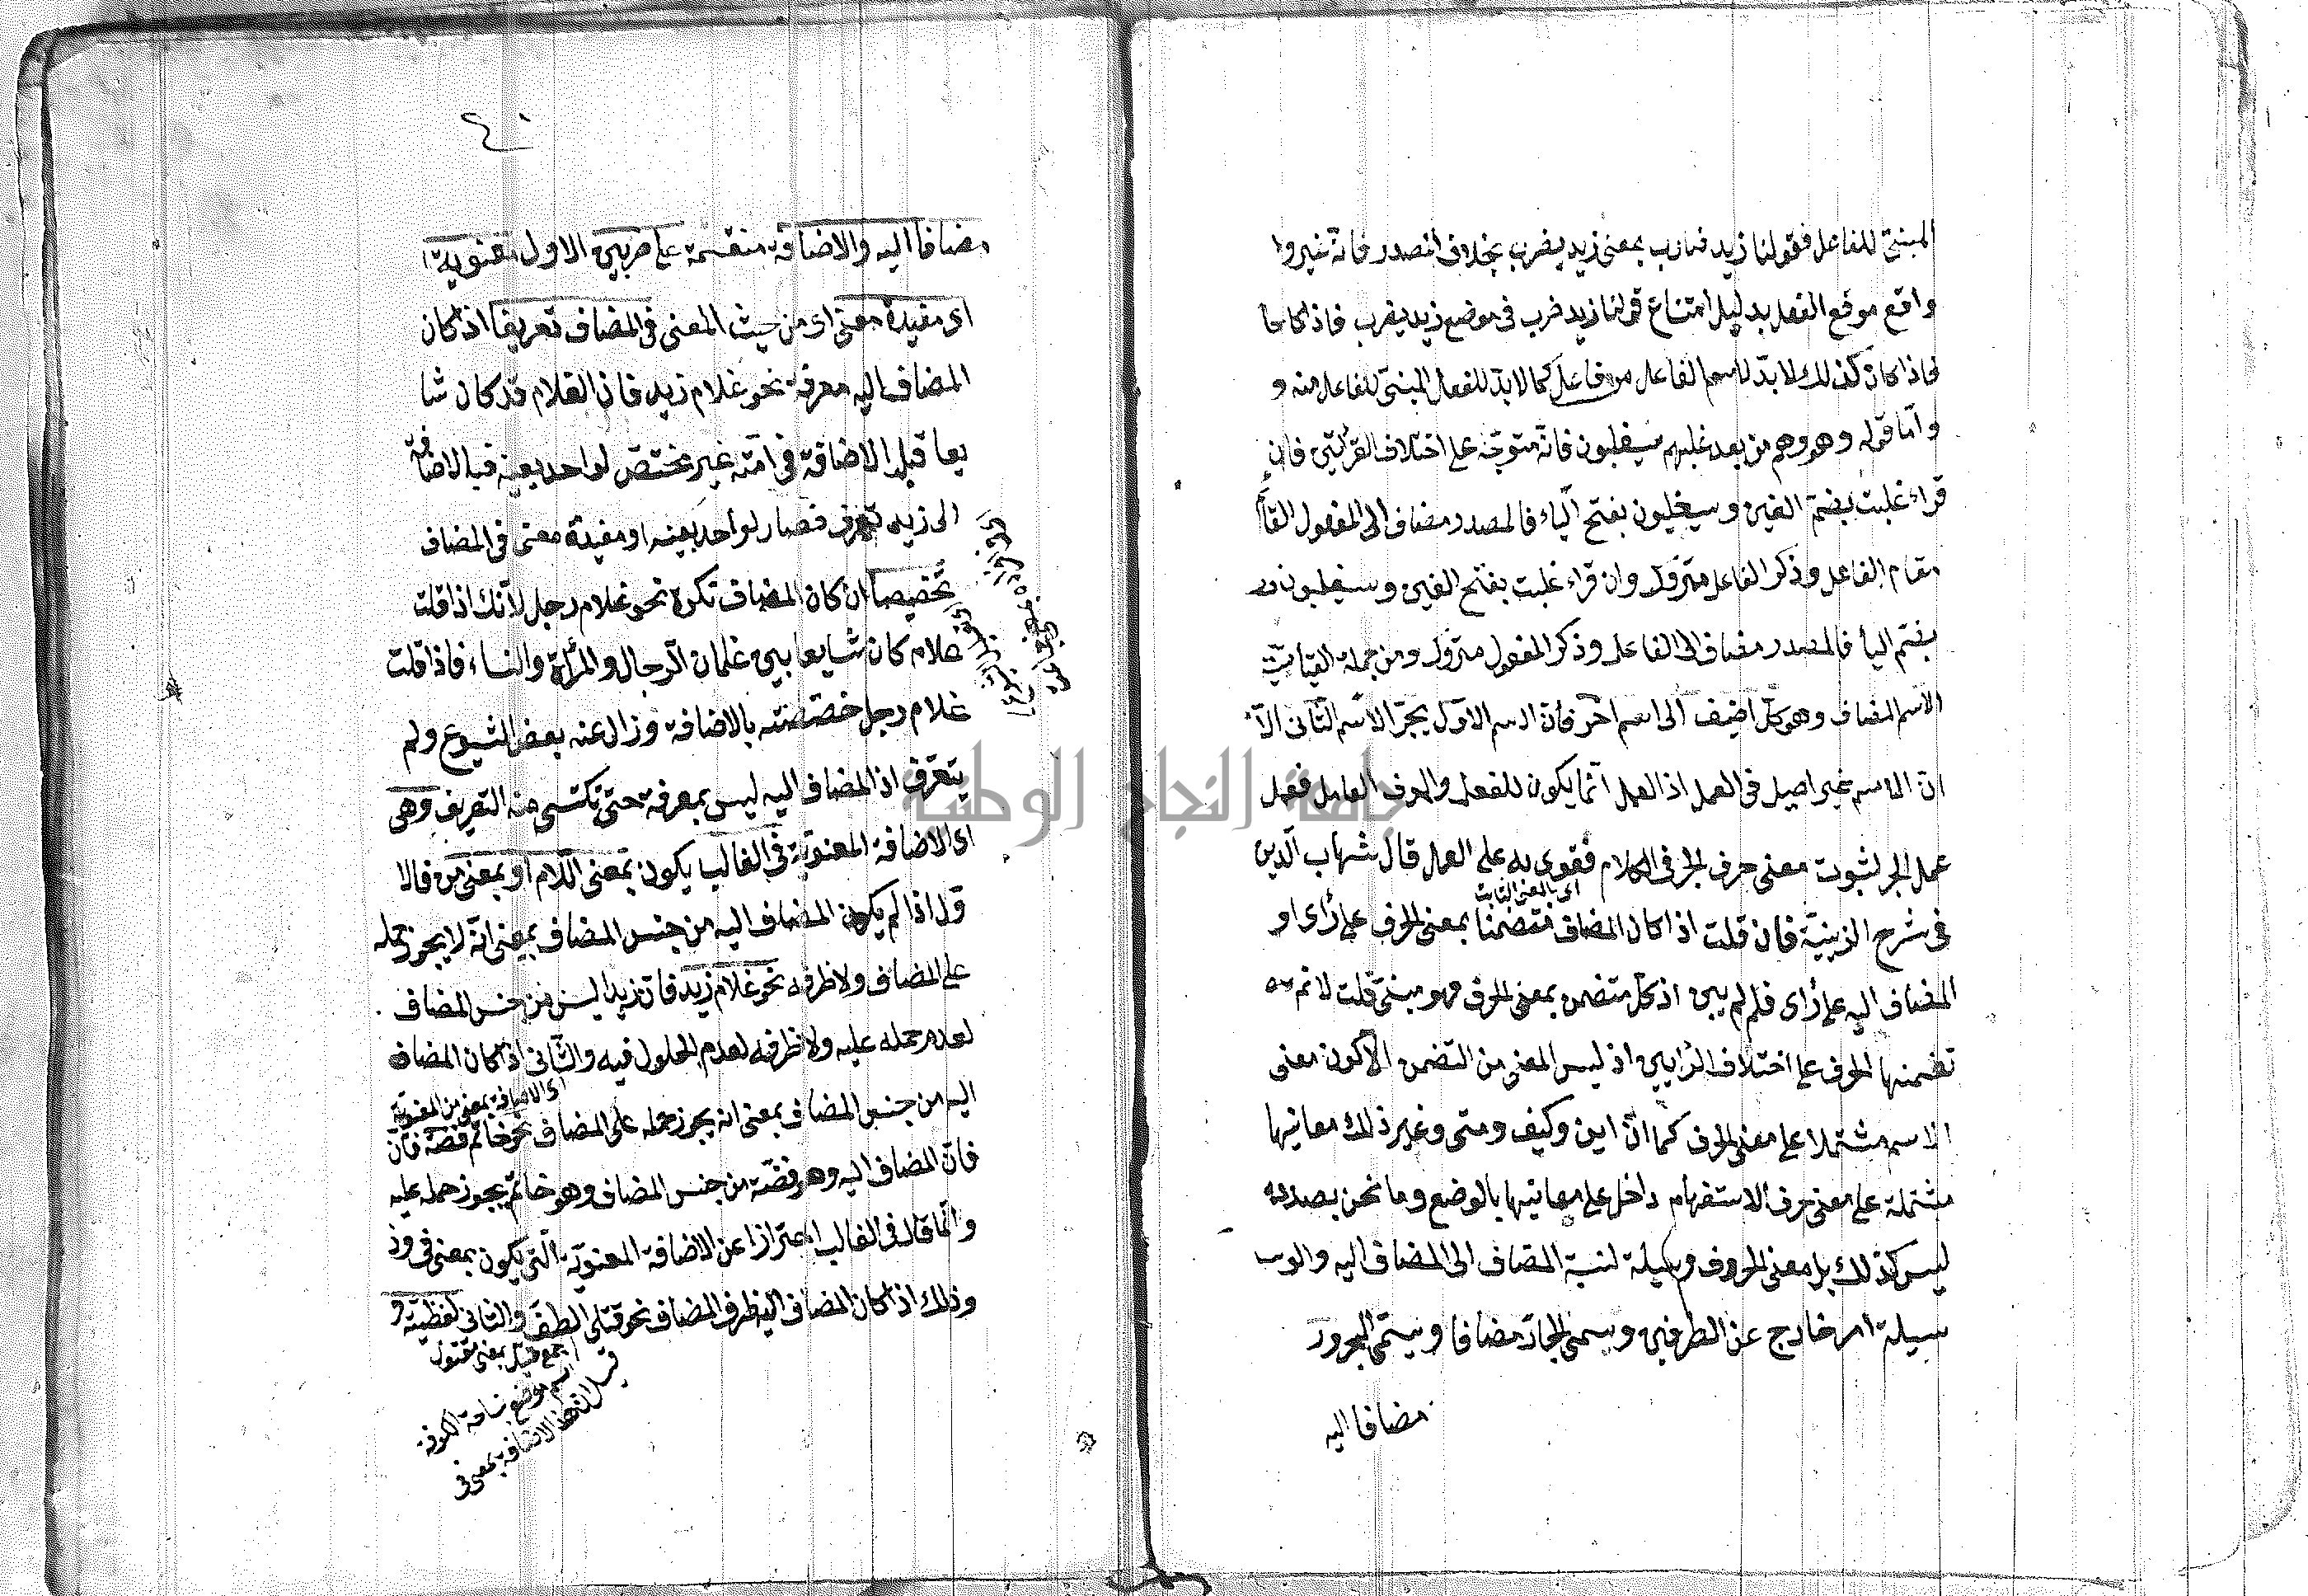 المبنىّ للفاعل فقولنا زيد ضارب بمعنى زيد يضرب بخلاف المصدر فانّه غير وا
واقع موقع الفعل بدليل امتناع قولنا زيد ضرب فى موضع زيد يضرب فاذا كا
فاذا كان كذلك لا بدّ لاسم الفاعل من فاعل كما لا بدّ للفعل المبنىّ للفاعل منه و
وامّا قوله وهو وهم من بعد غلبهم سيغلبون فانّه متوجّه على اختلاف القرأتين فان
قراء غلبت بضم الغين وسيغلبون بفتح الياء فالمصدر مضاف الى المفعول القا
مقام الفاعل وذكر الفاعل متروك وان قراء غلبت بفتح الغين وسيغلبون
بضم اليأ فالمصدر مضاف الى الفاعل وذكر المفعول متروك ومن جملة القياسيّة
الاسم المضاف وهو كلّ اضيف الى اسم اخر فانّ الاسم الاول يجرّ الاسم الثانى الا
انّ الاسم غير اصيل فى العمل اذ العمل انّما يكون للفعل والحرف العامل فعمل
عمل الجر لثبوت معنى حرف الجر فى الكلام فقوى به على العمل قال شهاب الدين
اى بالمعنى الثابت
فى شرح الزينيّة فان قلت اذا كان المضاف متضمنا بمعنى الحرف على رأى او
المضاف اليه على رأى فلم لم يبين اذ كل متضمن بمعنى الحرف فهو مبنىّ قلت لا نم
تضمنها الحرف على اختلاف الرأيين اذ ليس المعنى من التضمن الا كون معنى
الاسم مشتملا على معنى الحرف كما انّ اين وكيف ومتى وغير ذلك معانيها
مشتملة على معنى حرف الاستفهام داخل على معانيها بالوضع وما نحن بصدده
ليس كذلك بل معنى الحروف وسيلة لنسبة المضاف الى المضاف اليه والو
سيلة امر خارج عن الطرفين وسمى الجارّ مضافا ويسمّى المجرور
مضافا اليه
٤٠
مضافا اليه والاضافة منقسمة على ضربين الاول معنوية
اى مفيدة معنى اى من حيث المعنى فى المضاف تعريفا اذا كان
المضاف اليه معرفة نحو غلام زيد فان الغلام قد كان شا
يعا قبل الاضافة فى امّته غير مختصّ لواحد بعينه فبالاضافة
الى زيد تعرف فصار لواحد بعينه او مفيدة معنى فى المضاف
تخصيصا ان كان المضاف نكرة نحو غلام رجل لانّك اذا قلت
غلام كان شايعا بين غلمان الرجال والمرأة والنساء فاذا قلت
غلام رجل خصّصته بالاضافة وزال عنه بعض الشيوع ولم
يتعرّف اذ المضاف اليه ليس بمعرفة حتى تكتسى منه التعريف وهى
اى الاضافة المعنويّة فى الغالب يكون بمعنى اللام او بمعنى من فالا
ول اذا لم يكون المضاف اليه من جنس المضاف بمعنى انّه لا يجوز حمله
على المضاف ولا ظرفه نحو غلام زيد فان زيدا ليس من جنس المضاف
لعدم حمله عليه ولا ظرفه لعدم الحلول فيه والثانى اذا كان المضاف
اى الاضافة بمعنى من المعنوية
اليه من جنس المضاف بمعنى انه يجوز حمله على المضاف نحو خاتم فضّة فانّ
فانّ المضاف اليه وهو فضّة من جنس المضاف وهو خاتم يجوز حمله عليه
وانّما قال فى الغالب احترازا عن الاضافة المعنويّة الّتى يكون بمعنى فى وذ
وذلك اذا كان المضاف اليه ظرف المضاف نحو قتلى الطفّ والثانى لفظيّة و
جمع قتيل بمعنى مقتول
اسم موضع ساحة الكوفة
الاضافة بمعنى فى